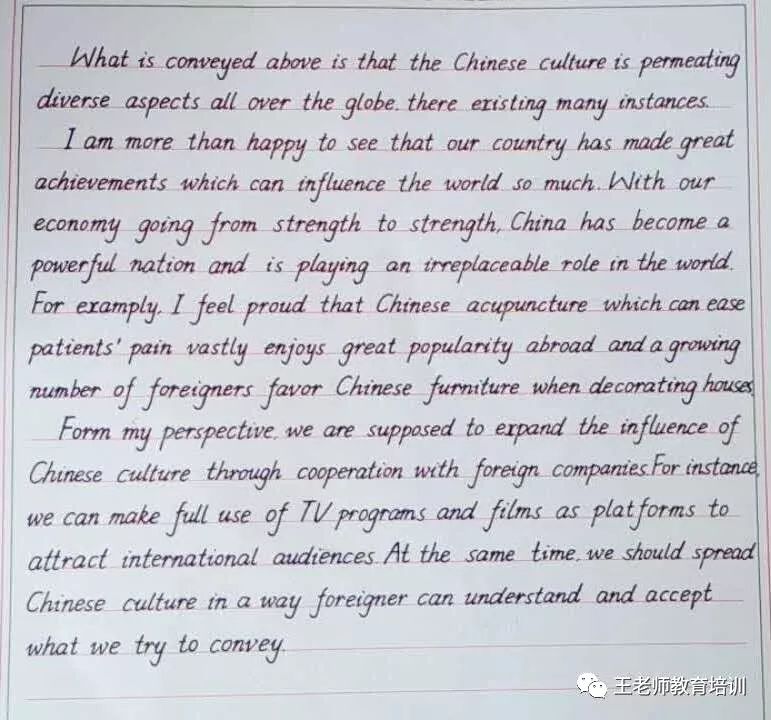 What is conveyed above is that the Chinese culture is permeating
diverse aspects all over the globe, there existing many instances.
I am more than happy to see that our country has made great
achievements which can influence the world so much. With our
economy going from strength to strength, China has become a
powerful nation and is playing an irreplaceable role in the world.
For examply, I feel proud that Chinese acupuncture which can ease
patients' pain vastly enjoys great popularity abroad and a growing
number of foreigners favor Chinese furniture when decorating houses.
Form my perspective, we are supposed to expand the influence of
Chinese culture through cooperation with foreign companies. For instance,
we can make full use of TV programs and films as platforms to
attract international audiences. At the same time, we should spread
Chinese culture in a way foreigner can understand and accept
what we try to convey.
王老师教育培训